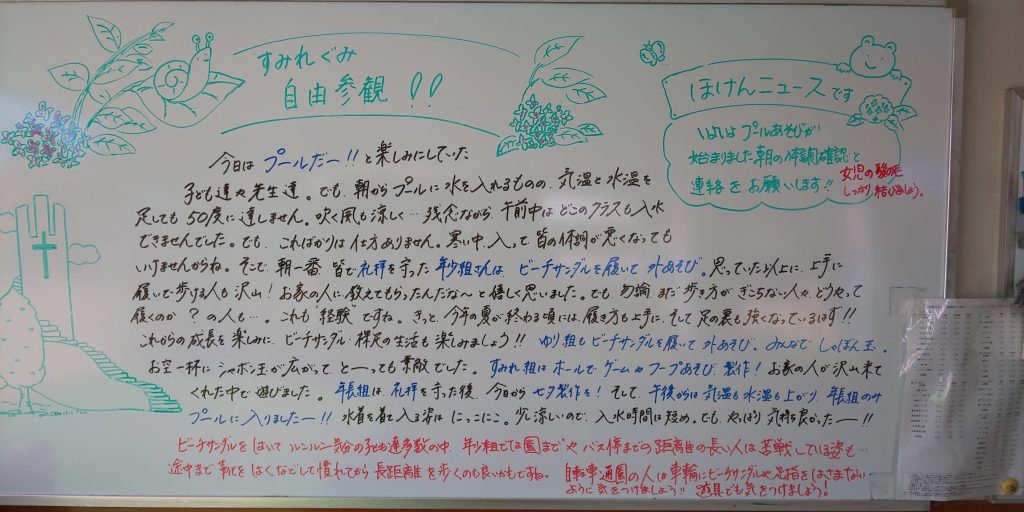 すみれぐみ
自由参観!!
ほけんニュースです
いよいよプールあそびが
始まりました朝の体調確認と
連絡をお願いします!!
女児の髪の毛
しっかり結びましょう。
今日はプールだー!!と楽しみにしていた
子ども達や先生達。でも、朝からプールに水を入れるものの、気温と水温を
足しても50度に達しません。吹く風も涼しく…残念ながら、午前中はどのクラスも入水
できませんでした。でも、こればかりは仕方ありません。寒い中、入って、皆の体調が悪くなっても
いけませんからね。そこで朝一番、皆で礼拝を守った年少組さんは、ビーチサンダルを履いて外あそび。思っていた以上に、上手に
履いて歩ける人も沢山!お家の人に教えてもらったんだな〜と嬉しく思いました。でも勿論、まだ歩き方がぎこちない人や、どうやって
履くのか?の人も…。これも"経験"ですね。きっと、今年の夏が終わる頃には、履き方も上手に、そして足の裏も強くなっているはず!!
これからの成長を楽しみに、ビーチサンダル・裸足の生活も楽しみましょう!!ゆり組もビーチサンダルを履いて外あそび。みんなでしゃぼん玉。
お空一杯にシャボン玉が広がって、と〜っても素敵でした。すみれ組はホールでゲームやフープあそび、製作!お家の人が沢山来て
くれた中で遊びました。年長組は、礼拝を守った後、今日から七夕製作を!そして、午後からは気温も水温も上がり、年長組のみ
プールに入りましたー!!水着を着て入る姿はにっこにこ。少し涼しいので、入水時間は短め。でも、やっぱり気持ち良かったー!!
ビーチサンダルをはいてルンルン気分の子ども達多数の中、年少組では園までやバス停までの距離の長い人は苦戦している姿も…
途中まで靴をはくなどして慣れてから長距離を歩くのも良いかもですね。自転車通園の人は車輪にビーチサンダルや足指をはさまない
ように気をつけましょう!!遊具でも気をつけましょう!